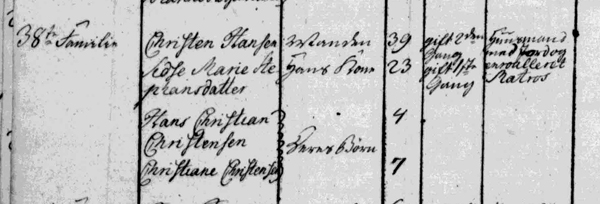 38te Familie Christen Hansen Manden 39 gift 2den Gang Huusmand med Jord og enroulleret Matros
Marie Stephansdatter Hans Kone 23 gift 1ste Gang
Hans Christian Christensen 4
Christiane Christensen Deres Børn 7